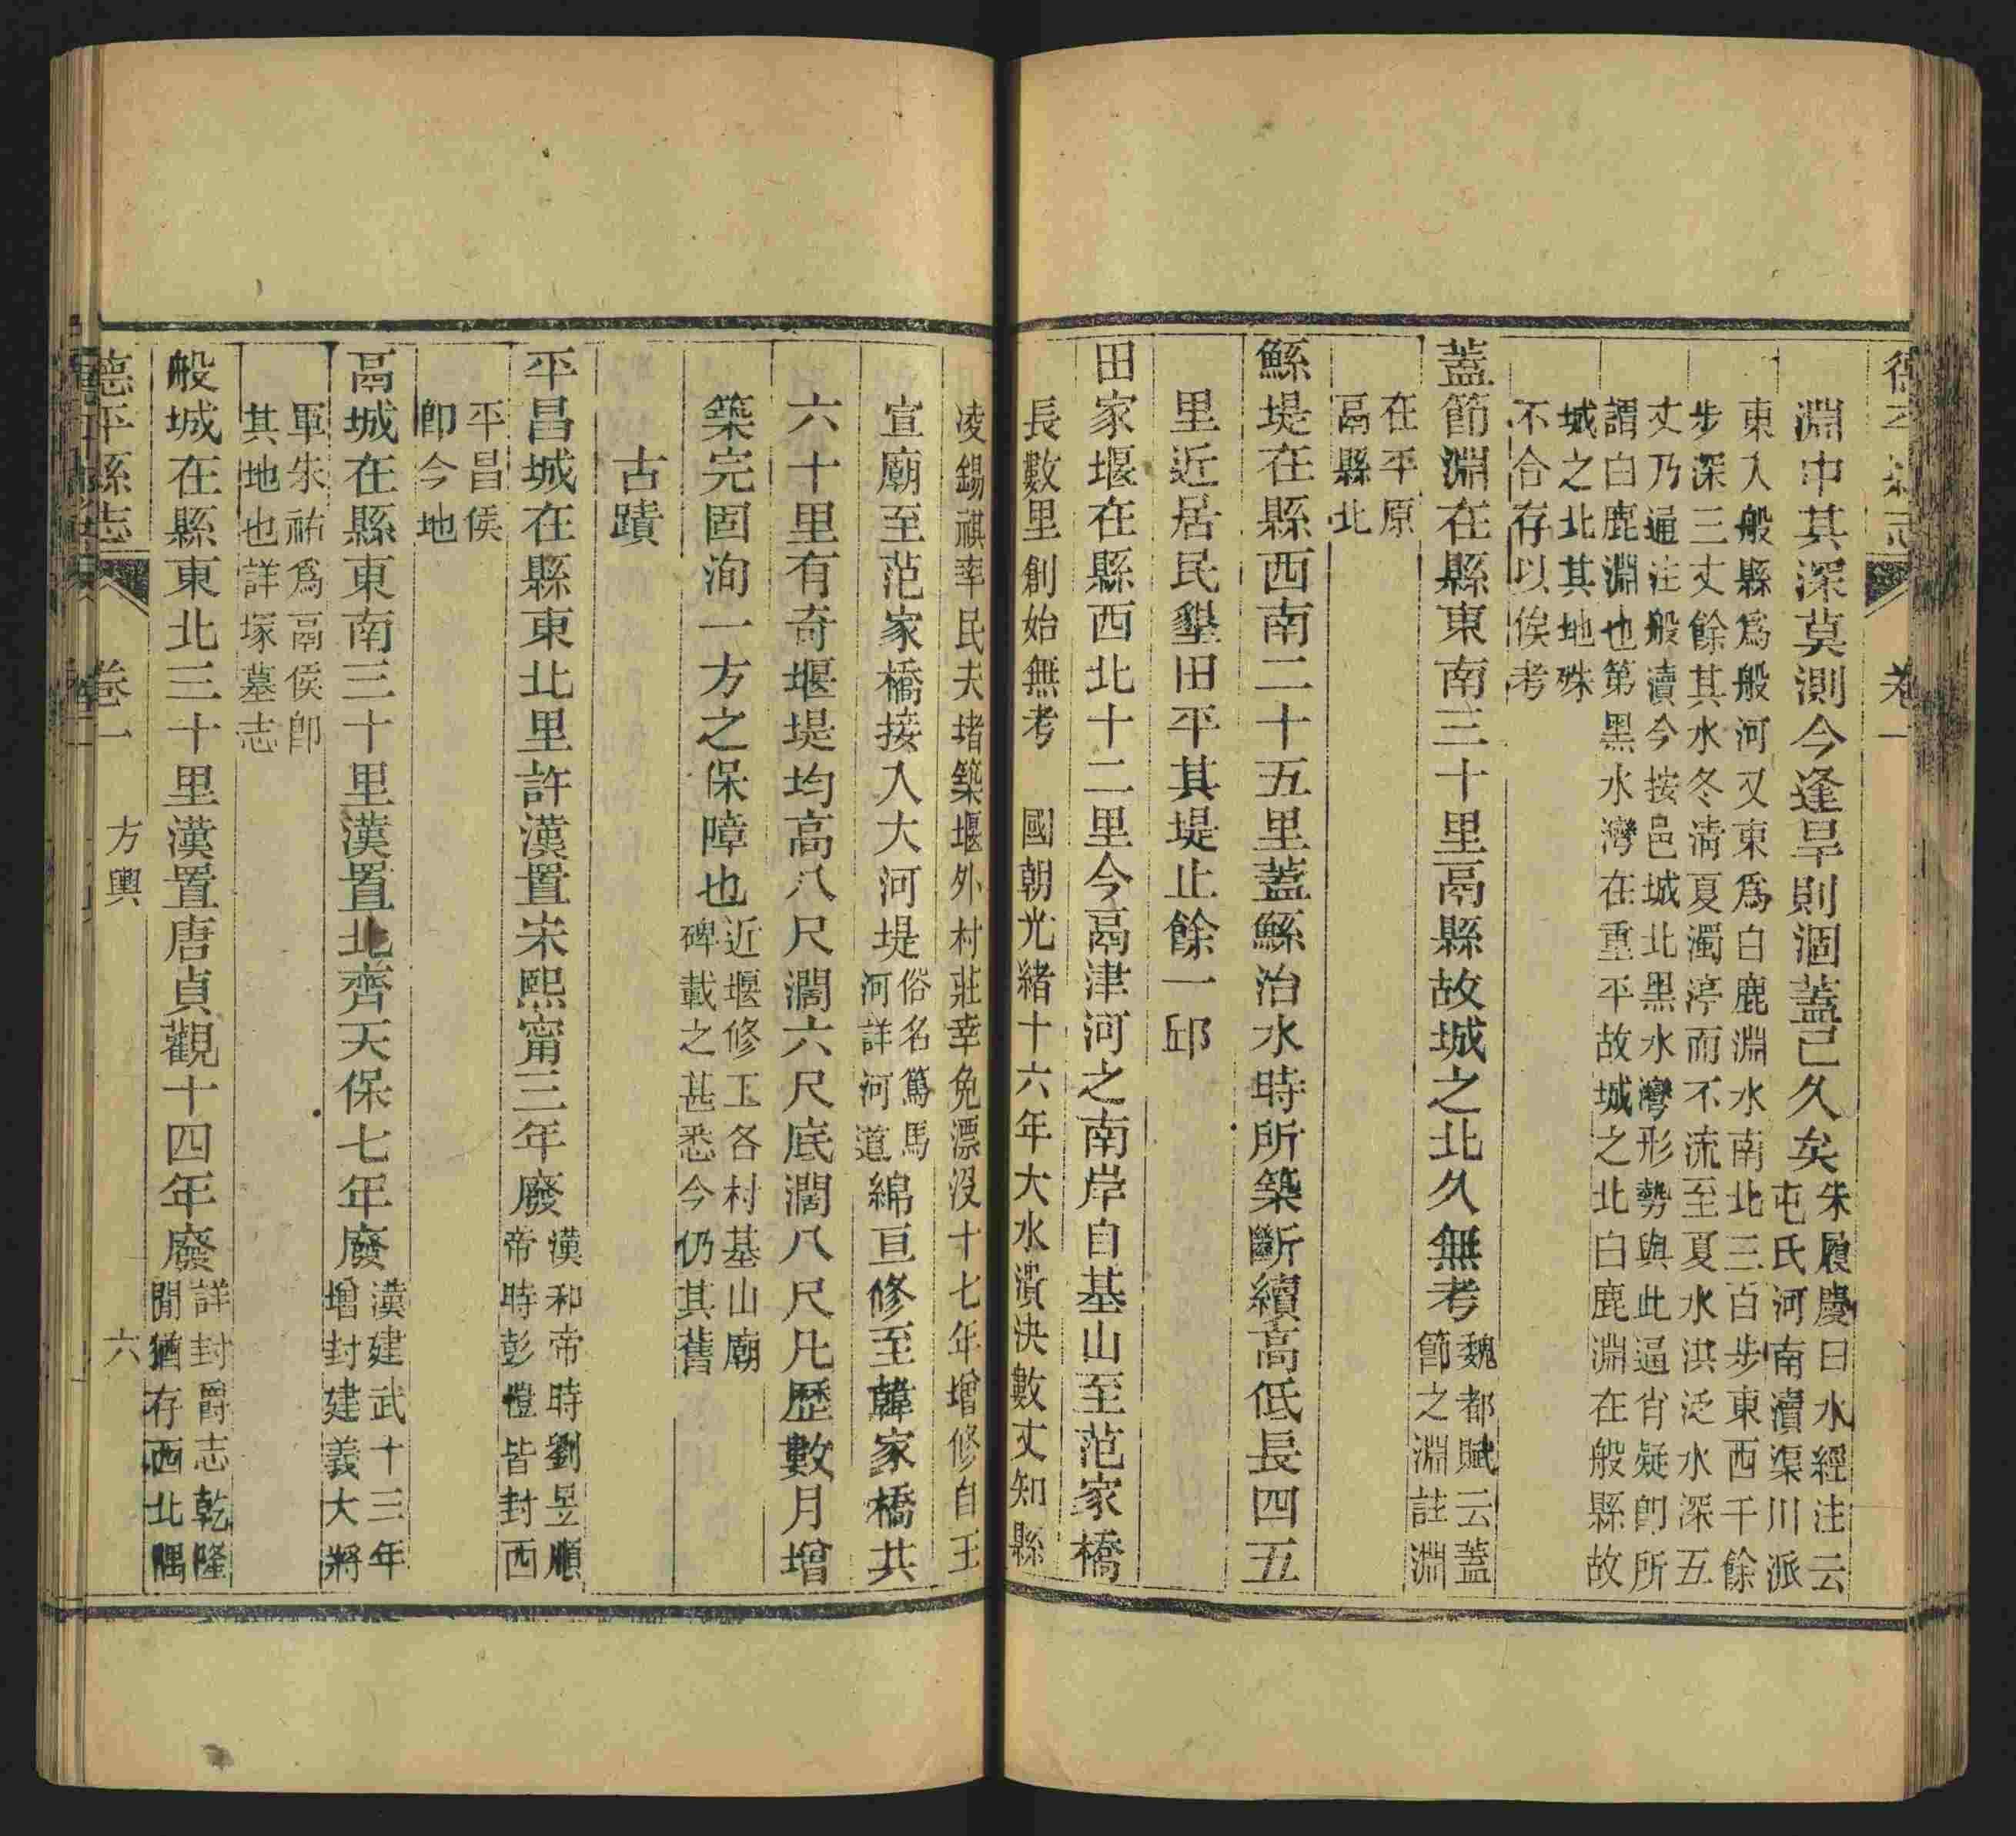 卷一
淵中其深莫測今逢旱則涸蓋已久矣朱履慶曰水經注云屯氏河南瀆渠川派
東入般縣爲般河又東爲白鹿淵水南北三百步東西千餘步深三丈餘其水冬淸夏濁渟而不流至夏水洪泛水深五
丈乃通注般瀆今按邑城北黑水灣形勢與此逼肖疑卽所謂白鹿淵也第黑水灣在重平故城之北白鹿淵在般縣故
城之北其地殊不合存以俟考
蓋節淵在縣東南三十里鬲縣故城之北久無考魏都賦云蓋節之淵註淵
在平原鬲縣北
鯀堤在縣西南二十五里蓋鯀治水時所築斷續高低長四五
里近居民墾田平其堤止餘一邱
田家堰在縣西北十二里今鬲津河之南岸自基山至范家橋
長數里創始無考 國朝光緒十六年大水潰決數丈知縣
凌錫祺率民夫堵築堰外村莊幸免漂沒十七年增修自王
宣廟至范家橋接入大河堤俗名篤馬河詳河道綿亘修至韓家橋共
六十里有奇堰堤均高八尺濶六尺底濶八尺凡歷數月增
築完固洵一方之保障也近堰修工各村基山廟碑載之甚悉今仍其舊
古蹟
平昌城在縣東北里許漢置宋熙甯三年廢漢和帝時劉昱順帝時彭愷皆封西
平昌侯卽今地
鬲城在縣東南三十里漢置北齊天保七年廢漢建武十三年增封建義大將
軍朱祐爲鬲侯卽其地也詳塚墓志
般城在縣東北三十里漢置唐貞觀十四年廢詳封爵志乾隆間猶存西北隅
德平縣志 卷一 方輿 六